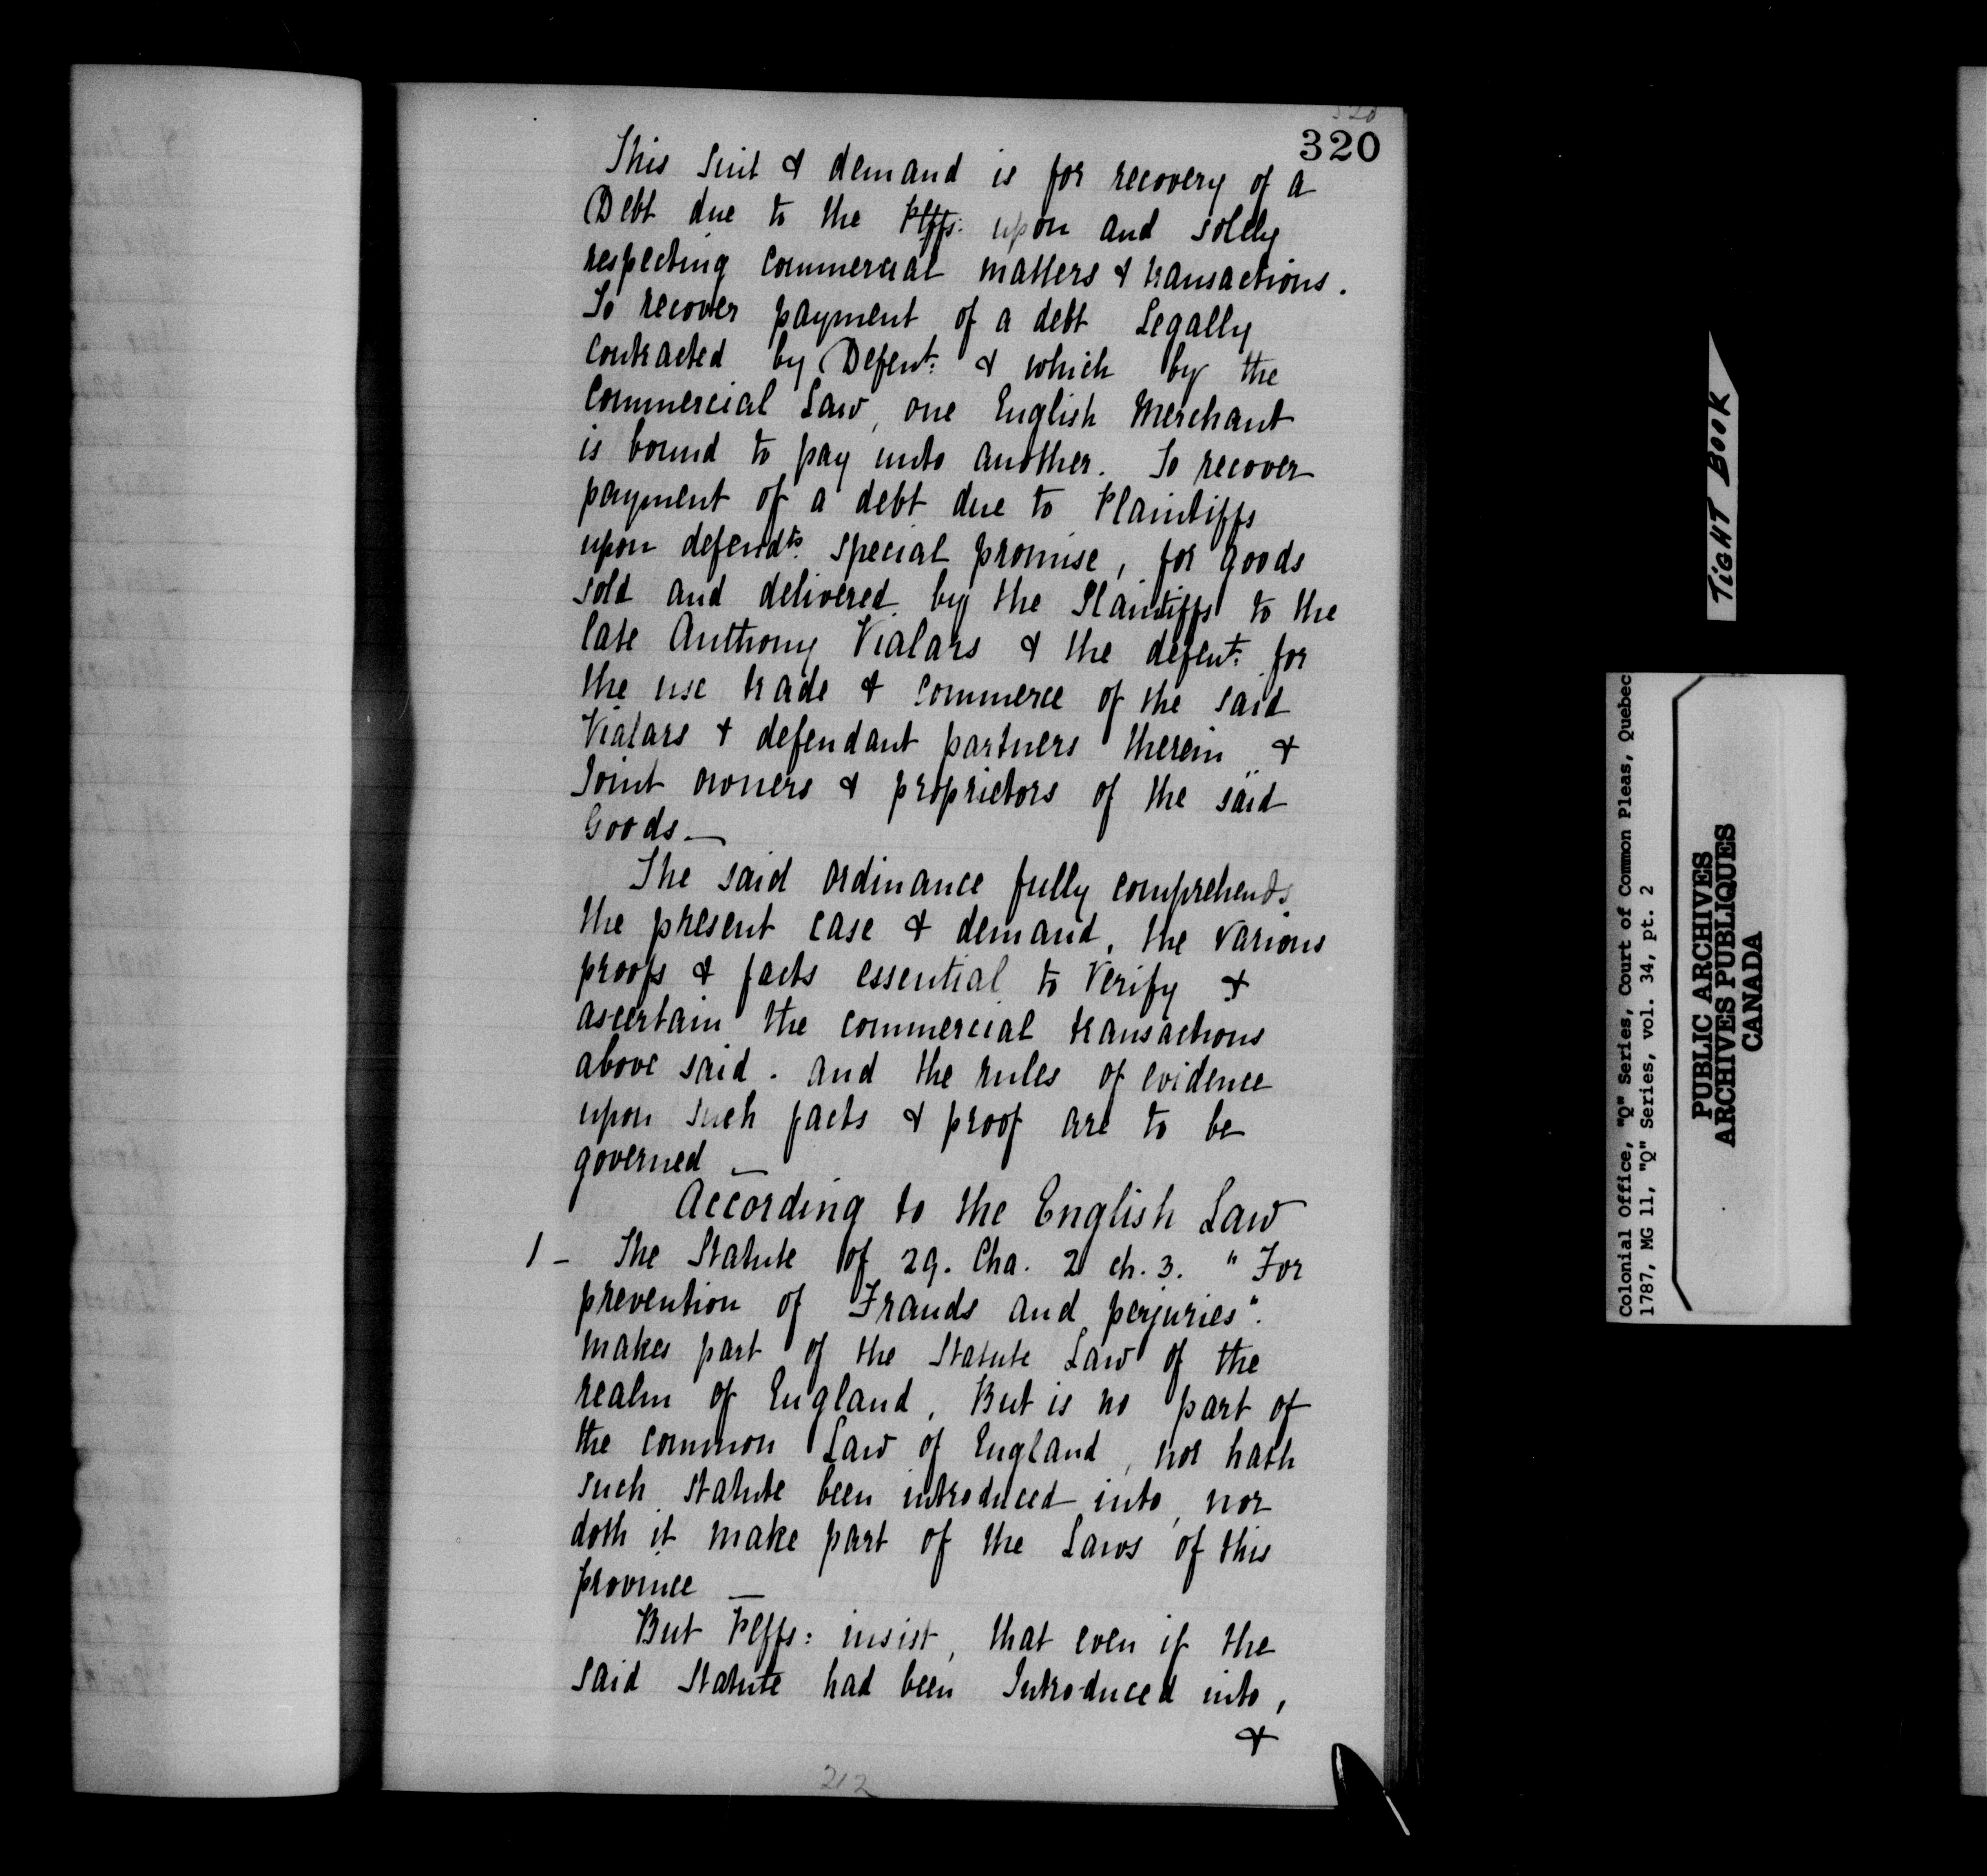 320
320
This Suit & demand is for recovery of a
Debt due to the Plffs: upon and solely
respecting commercial matters & transactions.
To recover payment of a debt Legally
contracted by Defent: & which by the
Commercial Law, one English Merchant
is bound to pay unto another. To recover
payment of a debt due to Plaintiffs
upon defendts. special promise, for goods
sold and delivered by the Plaintiffs to the
late Anthony Vialars & the defent: for
the use trade & commerce of the said
Vialars & defendant partners therein &
Joint owners & proprietors of the said
Goods. —
The said ordinance fully comprehends
the present case & demand, the various
proofs & facts essential to verify &
ascertain the commercial transactions
above said. and the rules of evidence
upon such facts & proof are to be
governed —
According to the English Law
1 - The Statute of 29. Cha. 2 ch. 3. "For
prevention of Frauds and perjuries".
makes part of the Statute Law of the
realm of England, But is no part of
the common Law of England, nor hath
such statute been introduced into, nor
doth it make part of the Laws of this
province —
But Plffs: insist, that even if the
said Statute had been Introduced into,
&
212
TIGHT BOOK
Colonial Office, "Q" Series, Court of Common Pleas, Quebec
1787, MG 11, "Q" Series, vol. 34, pt. 2
PUBLIC ARCHIVES
ARCHIVES PUBLIQUES
CANADA